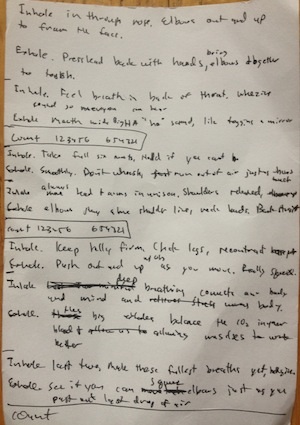 Inhale in through nose. Elbows out and up
to frame the face.
Exhale. Press head back with hands, bring elbows together
to touch.
Inhale. Feel breath in back of throat. whezing
sound so everyone can hear
Exhale Mouth wide Right "ha" sound, like fogging a mirror
Count 123456 654321
Inhale. Take full six counts, Hold if you cannot
Exhale. smoothly. Don't whoosh, run out of air just
Inhale always head + arms in unison. Shoulders relaxed,
Exhale elbows stay above shoulder line, neck back.
count 123456 654321
Inhale. Keep belly firm. Check legs, recontract
Exhale. Push out and up as you move. Really squeeze.
Inhale deep breathing connects our body
and mind and warms body.
Exhale. big exhales balance the CO2 in your
blood + allowing muscles to work
better
Inhale last two, make those fullest breaths yet,
Exhale. see if you can squeeze elbows just as you
push out last drop of air
count